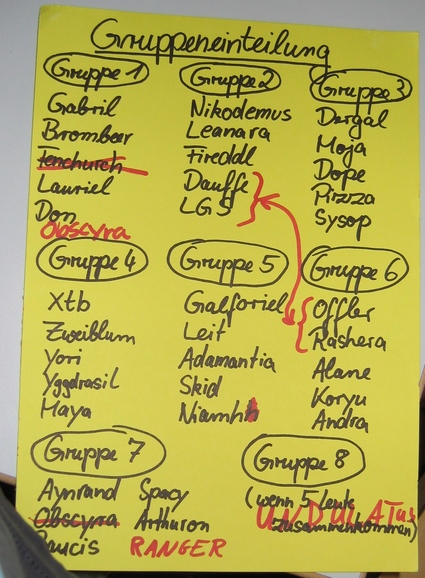 Gruppeneinteilung
Gruppe 1
Gabril
Brombeer
Fenchurch
Lauriel
Don
Obscyra
Gruppe 2
Nikodemus
Leanara
Fireddl
Dauffe
LGS
Gruppe 3
Dargal
Moja
Dope
Pizza
Sysop
Gruppe 4
Xtb
Zweiblum
Yori
Yggdrasil
Maya
Gruppe 5
Galforiel
Leit
Adamantia
Skid
Niamh
Gruppe 6
Offler
Rashera
Alane
Koryu
Andra
Gruppe 7
Aynrand Spacy
Obscyra Arthuron
Paucis RANGER
Gruppe 8
(wenn 5 Leute
UNDULATUS
zusammenkommen)